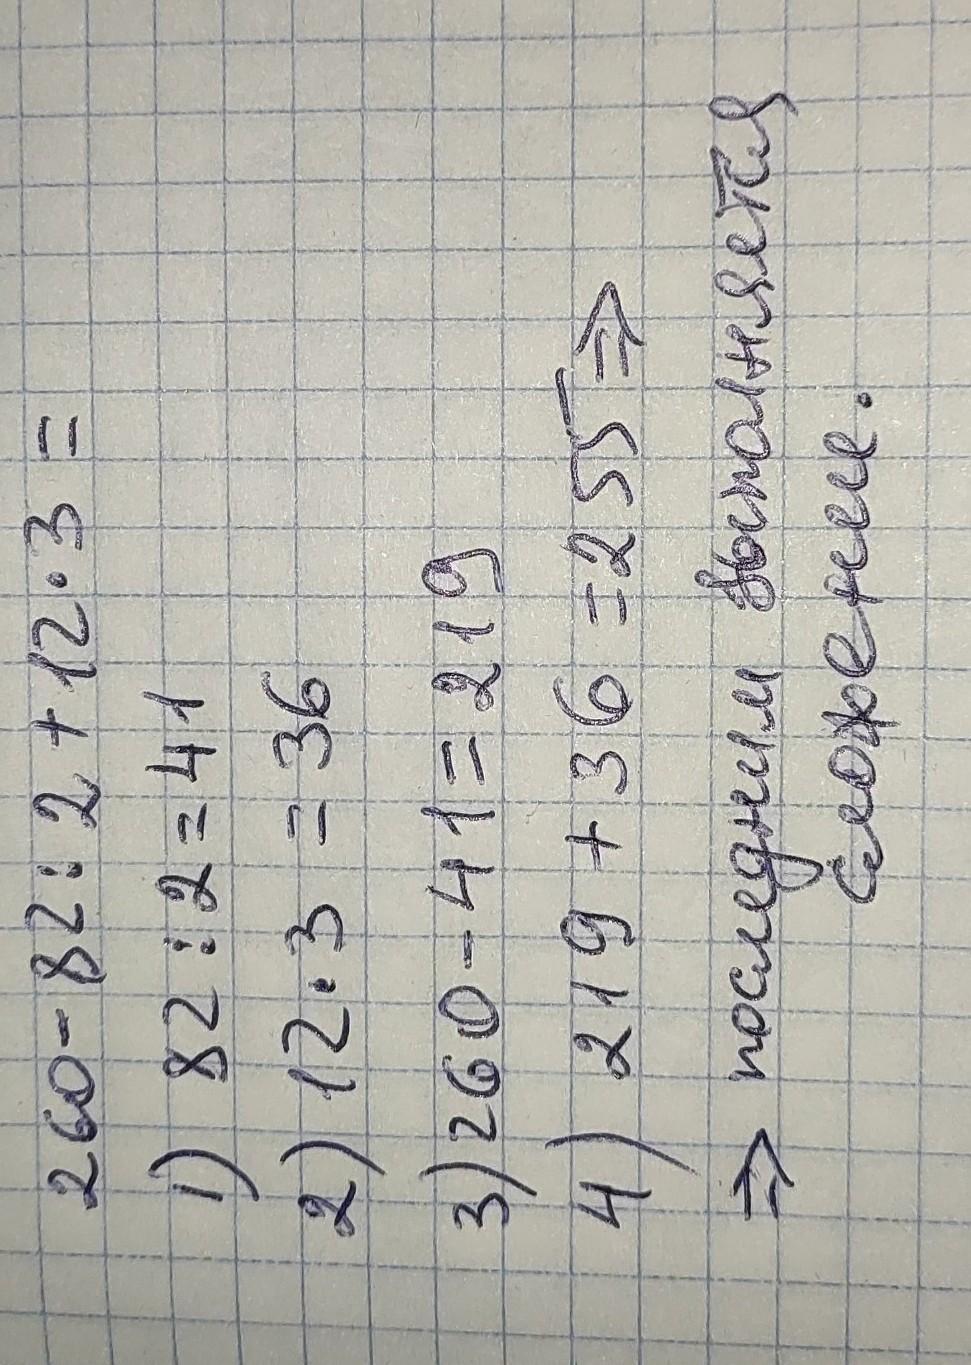 260-82:2+12·3=
1) 82:2=41
2) 12·3=36
3) 260-41=219
4) 219+36=255⇒
⇒ последним выполняется
сложение.